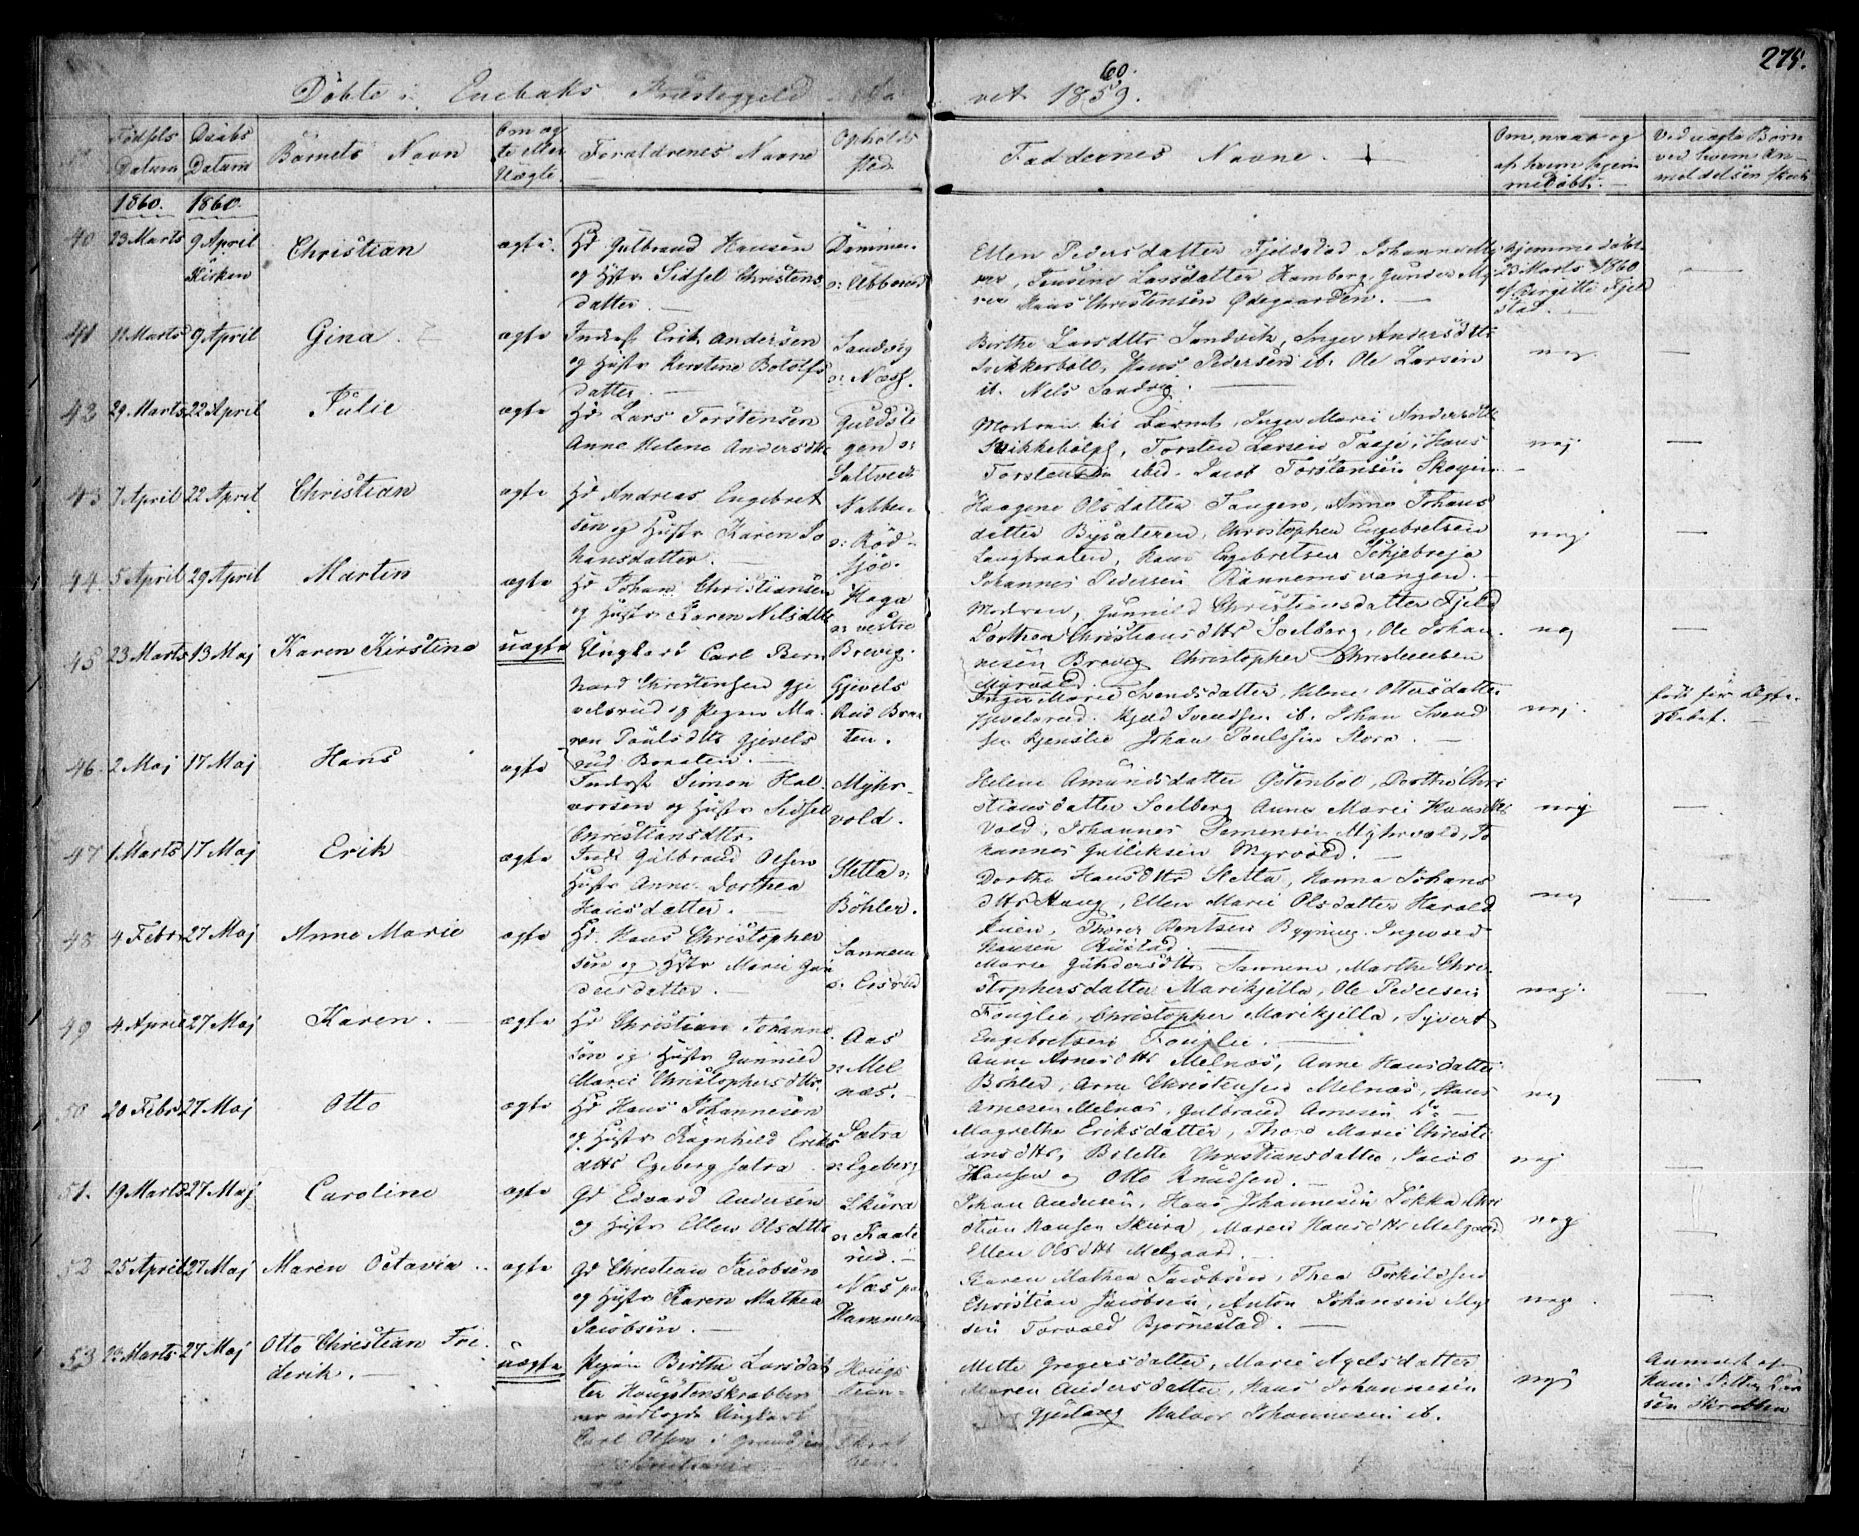 275.
Döbte i Enebaks Præstegjeld
60.
vet 1859.
Födsels Datum
Daabs Datum
Barnets Navn
Om ægte eller Uægte.
Forældrenes Navne
Opholds Sted
Faddernes Navne.
Om, naar og af hvem hjemmedöbt.
Ved uægte Börn ved hvem Anmeldelsen skeet
1860. 1860.
40 23 Marts 9 April Kirken Christian ægte
Hd Gulbrand Hansen
og Hstr Sidsel Christens
datter.
Ellen Pedersdatter Fjeldstad Johannes My
rer, Larsdatter Hamborg, Gunder My
rer Hans Christensen Ødegaarden.
Hjemmedöbt
23 Marts 1860
af Birgitte Fjeld
stad.
41 11 Marts 9 April Gina. ægte
Inderst Erik Andersen
og Hstr Kirstine Botolfs
datter.
Sandvig
o: Næss.
Birthe Larsdttr Sandvik, Inger Andersdttr
Svikkeböl, Hans Pedersen ib. Ole Larsen
ib. Nels Sandvig.
nej
43 29 Marts 22 April Julie ægte
Hd Lars Torstensen
Anne Helene Andersdtt
Guldste
gen o:
Moderen til Barnet, Inger Marie Andersdtt
Svikkeböl, Torsten Larsen
Torstensen ibid. Jacob Torstensen Skogen
nej
43 7 April 22 April Christian ægte
Hd Andreas Engebret
sen og Hustr Karen Jo
hansdatter.
Nabben
o: Röd
sjöe.
Haagene Olsdatter Tangen, Anne Johans
datter Bysæteren, Christopher Engebretsen
Langbraaten, Hans Engebretsen
Johannes Pedersen
nej
44. 5 April 29 April Martin ægte
Hd Johan Christiansen
og Hustr Karen Nilsdttr
Haga
o: vestre
Brevig.
Moderen, Gunnild Christiansdatter Fjeld
Dorthea Christiansdttr Solberg, Ole Johan
nesen Brevig Christopher Christensen
Myrvold
nej
45 23 Marts 13 Maj Karen Kirstine uægte
Ungkarl Carl Bern
hard Christensen Gje
velsrud og Pigen Ma
ren Poulsdttr Gjevels
rud Braaten.
Gjevels
Rud Braa
ten.
Inger Marie Svendsdatter, Helene Ottersdatter
Gjevelsrud. Kjeld Svendsen ib. Johan Svend
sen Johan Poulssen Stora
nej
född för Ægte
skabet.
46. 2 Maj 17 Maj Hans ægte
Inderst Simon Hal
vorsen og Hustr Sidsel
Christiansdttr.
Myhr
vold.
Helene Amundsdatter Östenböl, Dorthe Chri
stiansdatter Solberg Anne Marie Hansdtt
Vold, Johannes Myhrvold, Jo
hannes Gulliksen Myrvold.
nej
47 1 Marts 17 Maj Erik ægte
Inds Gulbrand Olsen
Hustr Anne Dorthea
Hansdatter.
Sletta o:
Böhler.
Dorthe Hansdttr Sletta, Hanna Johans
dttr Haug, Ellen Marie Olsdatter Harald
Bygning. Ingvald
Hansen Rustad.
nej
48 4 Febr 27 Maj Anne Marie ægte
Hd. Hans Christopher
sen og Hstr Marie Gun
dersdatter.
Marie Gundersdttr, Marthe Chri
stophersdatter Marikjella, Ole Pedersen
Fouglie, Christopher Marikjella, Syvert
Engebretsen Fouglie.
nej
49 4 April 27 Maj Karen. ægte
Hd Christian Johanne
sen og Hustr Gunnild
Marie Christophersdttr.
Aas
o: Mel
næs.
Anne Arnesdttr Melnæs, Anne Hansdatter
Böhler, Arne Christensen Melnæs, Hans
Arnesen Melnæs, Gulbrand Arnesen Do
nej
50 20 Febr 27 Maj Otto ægte
Hd Hans Johannesen
og Hustr Ragnhild Eriks
dttr Egeberg Sætra
Sætra
o: Egeberg
Magrethe Eriksdatter, Thora Marie Christi
ansdttr, Bolette Christiansdatter, Jacob
Hansen og Otto Knudsen.
nej
51. 19 Marts 27 Maj Caroline ægte
Gd Edvard Andersen
og Hustr Ellen Olsdttr
Skura
o: Kaate
rud.
Johan Andersen, Hans Johannesen Lökka, Chri
stian Hansen Skura, Maren Hansdttr Melgaard
Ellen Olsdttr Melgaard.
nej
52 25 April 27 Maj Maren Octavia ægte
Gd Christian Jacobsen
og Hustr Karen Mathea
Jacobsen.
Næs paa
Hammeren
Karen Mathea Jacobsen, Thea Torkildsen
Christian Jacobsen, Anton Johansen My
sen Torvald Björnestad.
nej
53 Marts 27 Maj Otto Christian Fre
derik. uægte
Pigen Birthe Larsdat
ter Haugstenskrabben
ner udlagde Ungkarl
Carl Olsen i
Haug
sten
Mette Gregersdatter, Marie Agelsdatter
Maren Andersdatter, Hans Johannesen
Gjestang Halvor Johannesen ib.
nej
Anmeldt af
Hans Petter Lar
sen